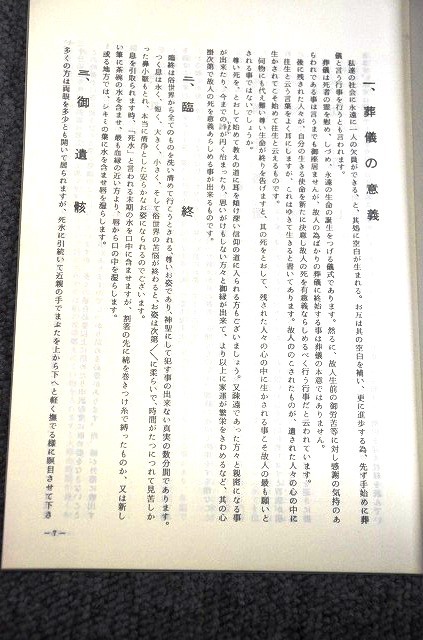 一、葬儀の意義
私達の社会に永遠に一人の欠員ができる、と、其処に空白が生まれる。お互は其の空白を補い、更に進歩する為、先ず手始めに葬
儀と言う行事を行うとも言われます。
葬儀は死者の霊を慰め、しづめ、永遠の生命の誕生をつげる儀式であります。然るに、故人生前の御労苦等に対し感謝の気持のあ
らわれである事は言うまでも御座居ませんが、故人の為ばかりの葬儀に終始する事は葬儀の本意ではありません。
後に残された人々が、自分の生きる使命を新たに決意し故人の死を有意義ならしめるべく行う行事だと云われています。
往生と云う言葉をよく耳にしますが、これはゆきて生きると書いてあります。故人ののこされたものが、遺された人々の心の中に
生かされてこそ始めて往生と云えるものです。
何物にも代え難い尊い生命が終りを告げますと、其の死をとおして、残された人々の心の中に生かされる事こそ故人の最も願いと
される事ではないでしょうか。
尊い死を、とおして始めて教えの道に耳を傾け深い信仰の道に入られる方もございましょう。又疎遠であった方々と親密になる事
が出来たり、今までの諍が円く治まったり、思いがけもしない方々と御縁が出来て、より以上に家運が繁栄をきわめるなど、其の心
掛次第で故人の死を意義あらしめる事が出来るものです。
二、臨終
臨終は俗世界から全てのものを洗い清めて行くうとされる、尊いお姿であり、神聖にして犯す事の出来ない真実の数分間であります。
つく息は永く、短く、大きく、小さく、そして俗世界の苦悩が終わると、お姿は次第〳〵に柔らいで、時間がたつにつれて見苦しか
った鼻小皺もとれ、本当に清浄とした安らかなお姿になられるのでございます。
息を引取られます時、「死水」と言われる末期の水を口中に含ませますが、割箸の先に綿を巻きつけ糸で縛ったものか、又は新し
い筆に茶碗の水を含ませ、最も血縁の近い方より、唇から口の中を湿らします。
或る地方では、シキミの葉に水を含ませ唇を湿らします。
三、御遺骸
多くの方は両眼を多少とも開いて居られますが、死水に引続いて近親の手でまぶたを上から下へと軽く撫でる様に瞑目させて下さ
—7—